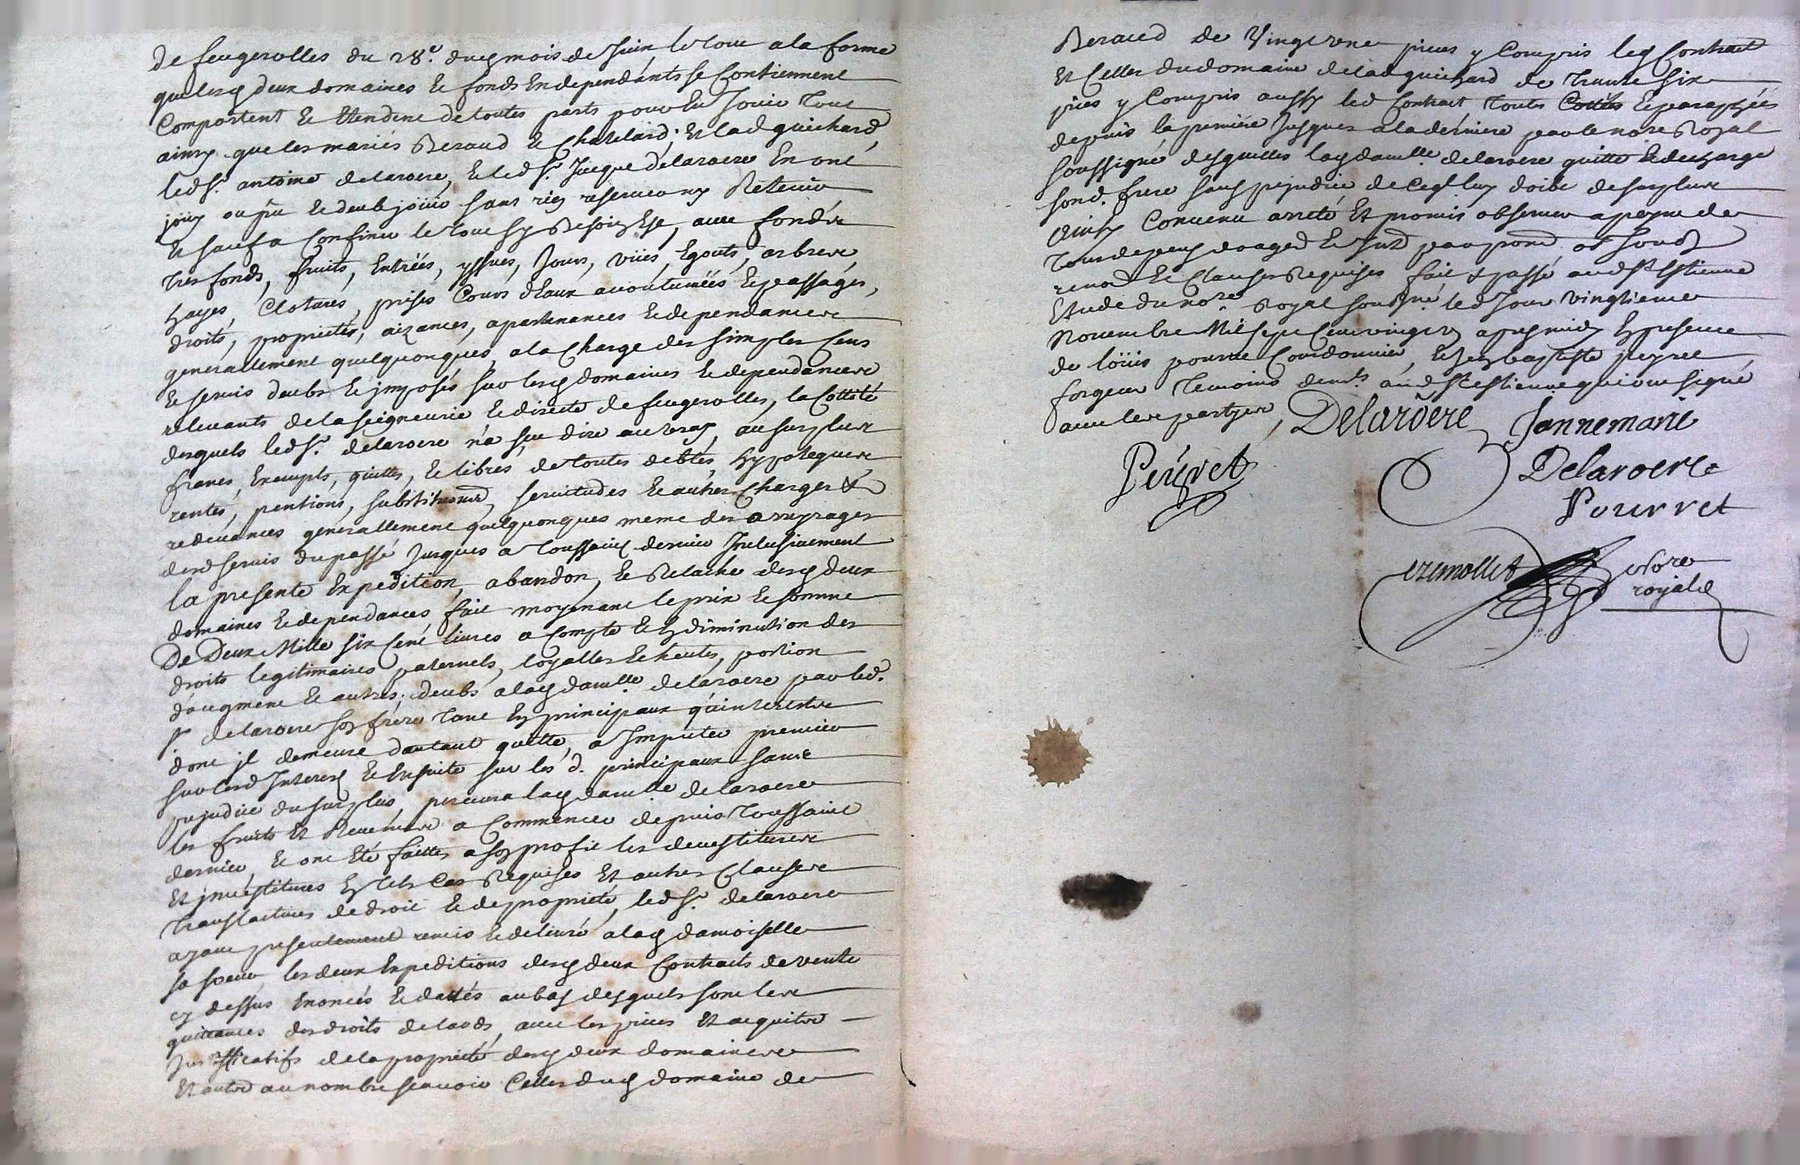 de feugerolles du 28e. dud mois de Juin le tout a la forme
que lesd deux domaines et fonds En dependants se Contiennent
Comportent et Etendent de toutes parts pour En Jouir tout
ainsy que les mariés Beraud et Chatelard, et lad guichard,
led sr. antoine delaroere, et led sr. Jacque delaroere En ont
jouy ou pu et deub jouir sans rien reserver ny Retenir
et sauf a Confiner le tout sy Besoin Est, avec fonds
tres fonds, fruits, Entrées, yssues, Jours, vües, Egouts, arbres,
hayes, Clotures, prises Cours d'Eaux accoutumées et passages,
droits, proprietés, aizances, apartenances et dependances
generallement quelquonques, a la Charge des simples Cens
et servis deubs et jmposés sur lesd domaines et dependances
relevants de la seigneurie et directe de feugerolles, la Cottité
desquels led sr. delaroere n'a sçeu dire au vray, au surplus
francs, Exempts, quittes, et libres de toutes debtes, hypoteques
rentes, pentions, substitutions, servitudes et autres Charges et
redevances generallement quelquonques meme des arrerages
desd servis du passé Jusques a toussaint dernier Inclusivement
la presente Expedition, abandon, et Relache desd deux
domaines et dependances, fait moyenant le prix et somme
De Deux Mille six Cent livres a Compte et En diminution des
droits legitimaires paternels, loyalles et heutes, portion
daugment et autres deubs a lad damlle. delaroere par led.
sr delaroere son frere tant En principaux qu'interests
dont jl demeure dautant quitte, a Imputer premier
sur lesd Interests et Ensuite sur les d. principaux sans
prejudice du surplus, percevra lad damlle delaroere
les fruits et Revenus a Commencer depuis toussaint
dernier, et ont Eté faittes a son profit les devestitures
et jnvestitures En tels Cas Requises et autres Clauses
translatives de droit et de propriété, led sr. delaroere
ayant presentement remis et delivré a lad damoiselle
sa soeur les deux Expeditions desd deux Contraits de vente
cy dessus Enoncés et dattés au bas desquels sont les
quittances des droits de lods, avec les pieces et acquits
Justificatifs de la propriete desd deux domaines
et autres au nombre scavoir Celles dud domaine de
Beraud de Vingt une pieces y Compris led Contrait
et Celles du domaine de lad guichard de trente six
pieces y Compris aussy led Contrait toutes Cottées et paraphées
depuis la premiere Jusques a la derniere par le nore Royal
soussigné desquelles lad damlle. delaroere quitte et decharge
sond. frere sans prejudice de ce qu'il luy doibt de surplus
Ainsy Convenu arreté et promis observer a peyne de
tous depens domages et Int
renon et Clauses Requises fait et passé aud St Estienne
Etude du nore Royal soussigné led Jour vingtieme
Novembre Mil sept Cent vingt apres midy En presence
de loüis pourret Courdonnier, et Jean baptiste peyret
forgeur temoins demts. aud St Estienne qui ont signé
avec les parties,
Delaroere Jannemarie
Peÿret Delaroere
Pourret
nore
royal